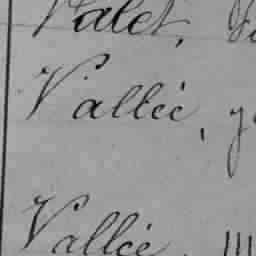 Valet,
Vallée,
Vallée,